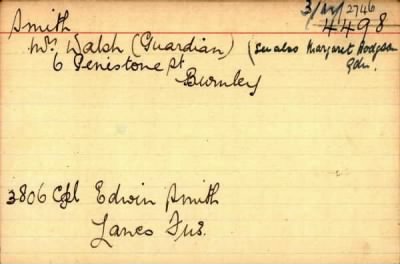 3/M/2746
Smith 4498
Mrs Walsh (Guardian) (See also Margaret Hodgson
6 Penistone St Gdn.
Burnley
3806 Cpl Edwin Smith
Lancs Fus.